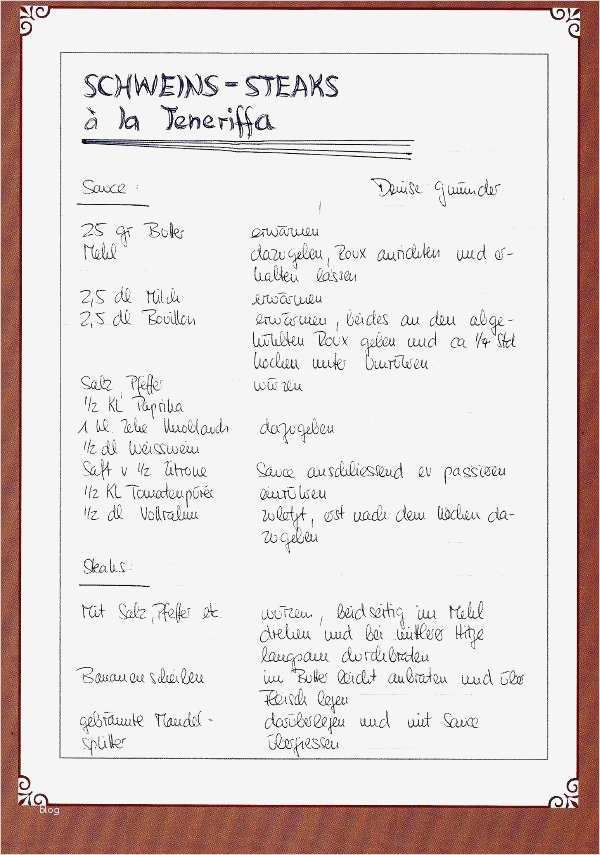 SCHWEINS-STEAKS
à la Teneriffa
Sauce: Denise Gmünder
25 gr Butter erwärmen
Mehl dazugeben, Roux anrichten und er-
kalten lassen
2,5 dl Milch erwärmen
2,5 dl Bouillon erwärmen, beides an den abge-
kühlten Roux geben und ca 1/4 Std
kochen unter Umrühren
Salz Pfeffer würzen
1/2 KL Paprika
1 kl. Zehe Knoblauch dazugeben
1/2 dl Weisswein
Saft v 1/2 Zitrone Sauce anschliessend ev passieren
1/2 KL Tomatenpürée einrühren
1/2 dl Vollrahm zuletzt, erst nach dem Kochen da-
zugeben
Steaks:
Mit Salz, Pfeffer etc würzen, beidseitig im Mehl
drehen und bei mittlerer Hitze
langsam durchbraten
Bananenscheiben im Butter leicht anbraten und über
Fleisch legen
gebräunte Mandel- darüberlegen und mit Sauce
splitter übergiessen
blog